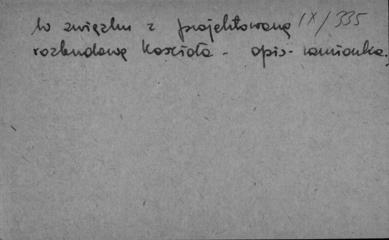 W związku z projektowaną IX/335
rozbudową Kościoła - opis -